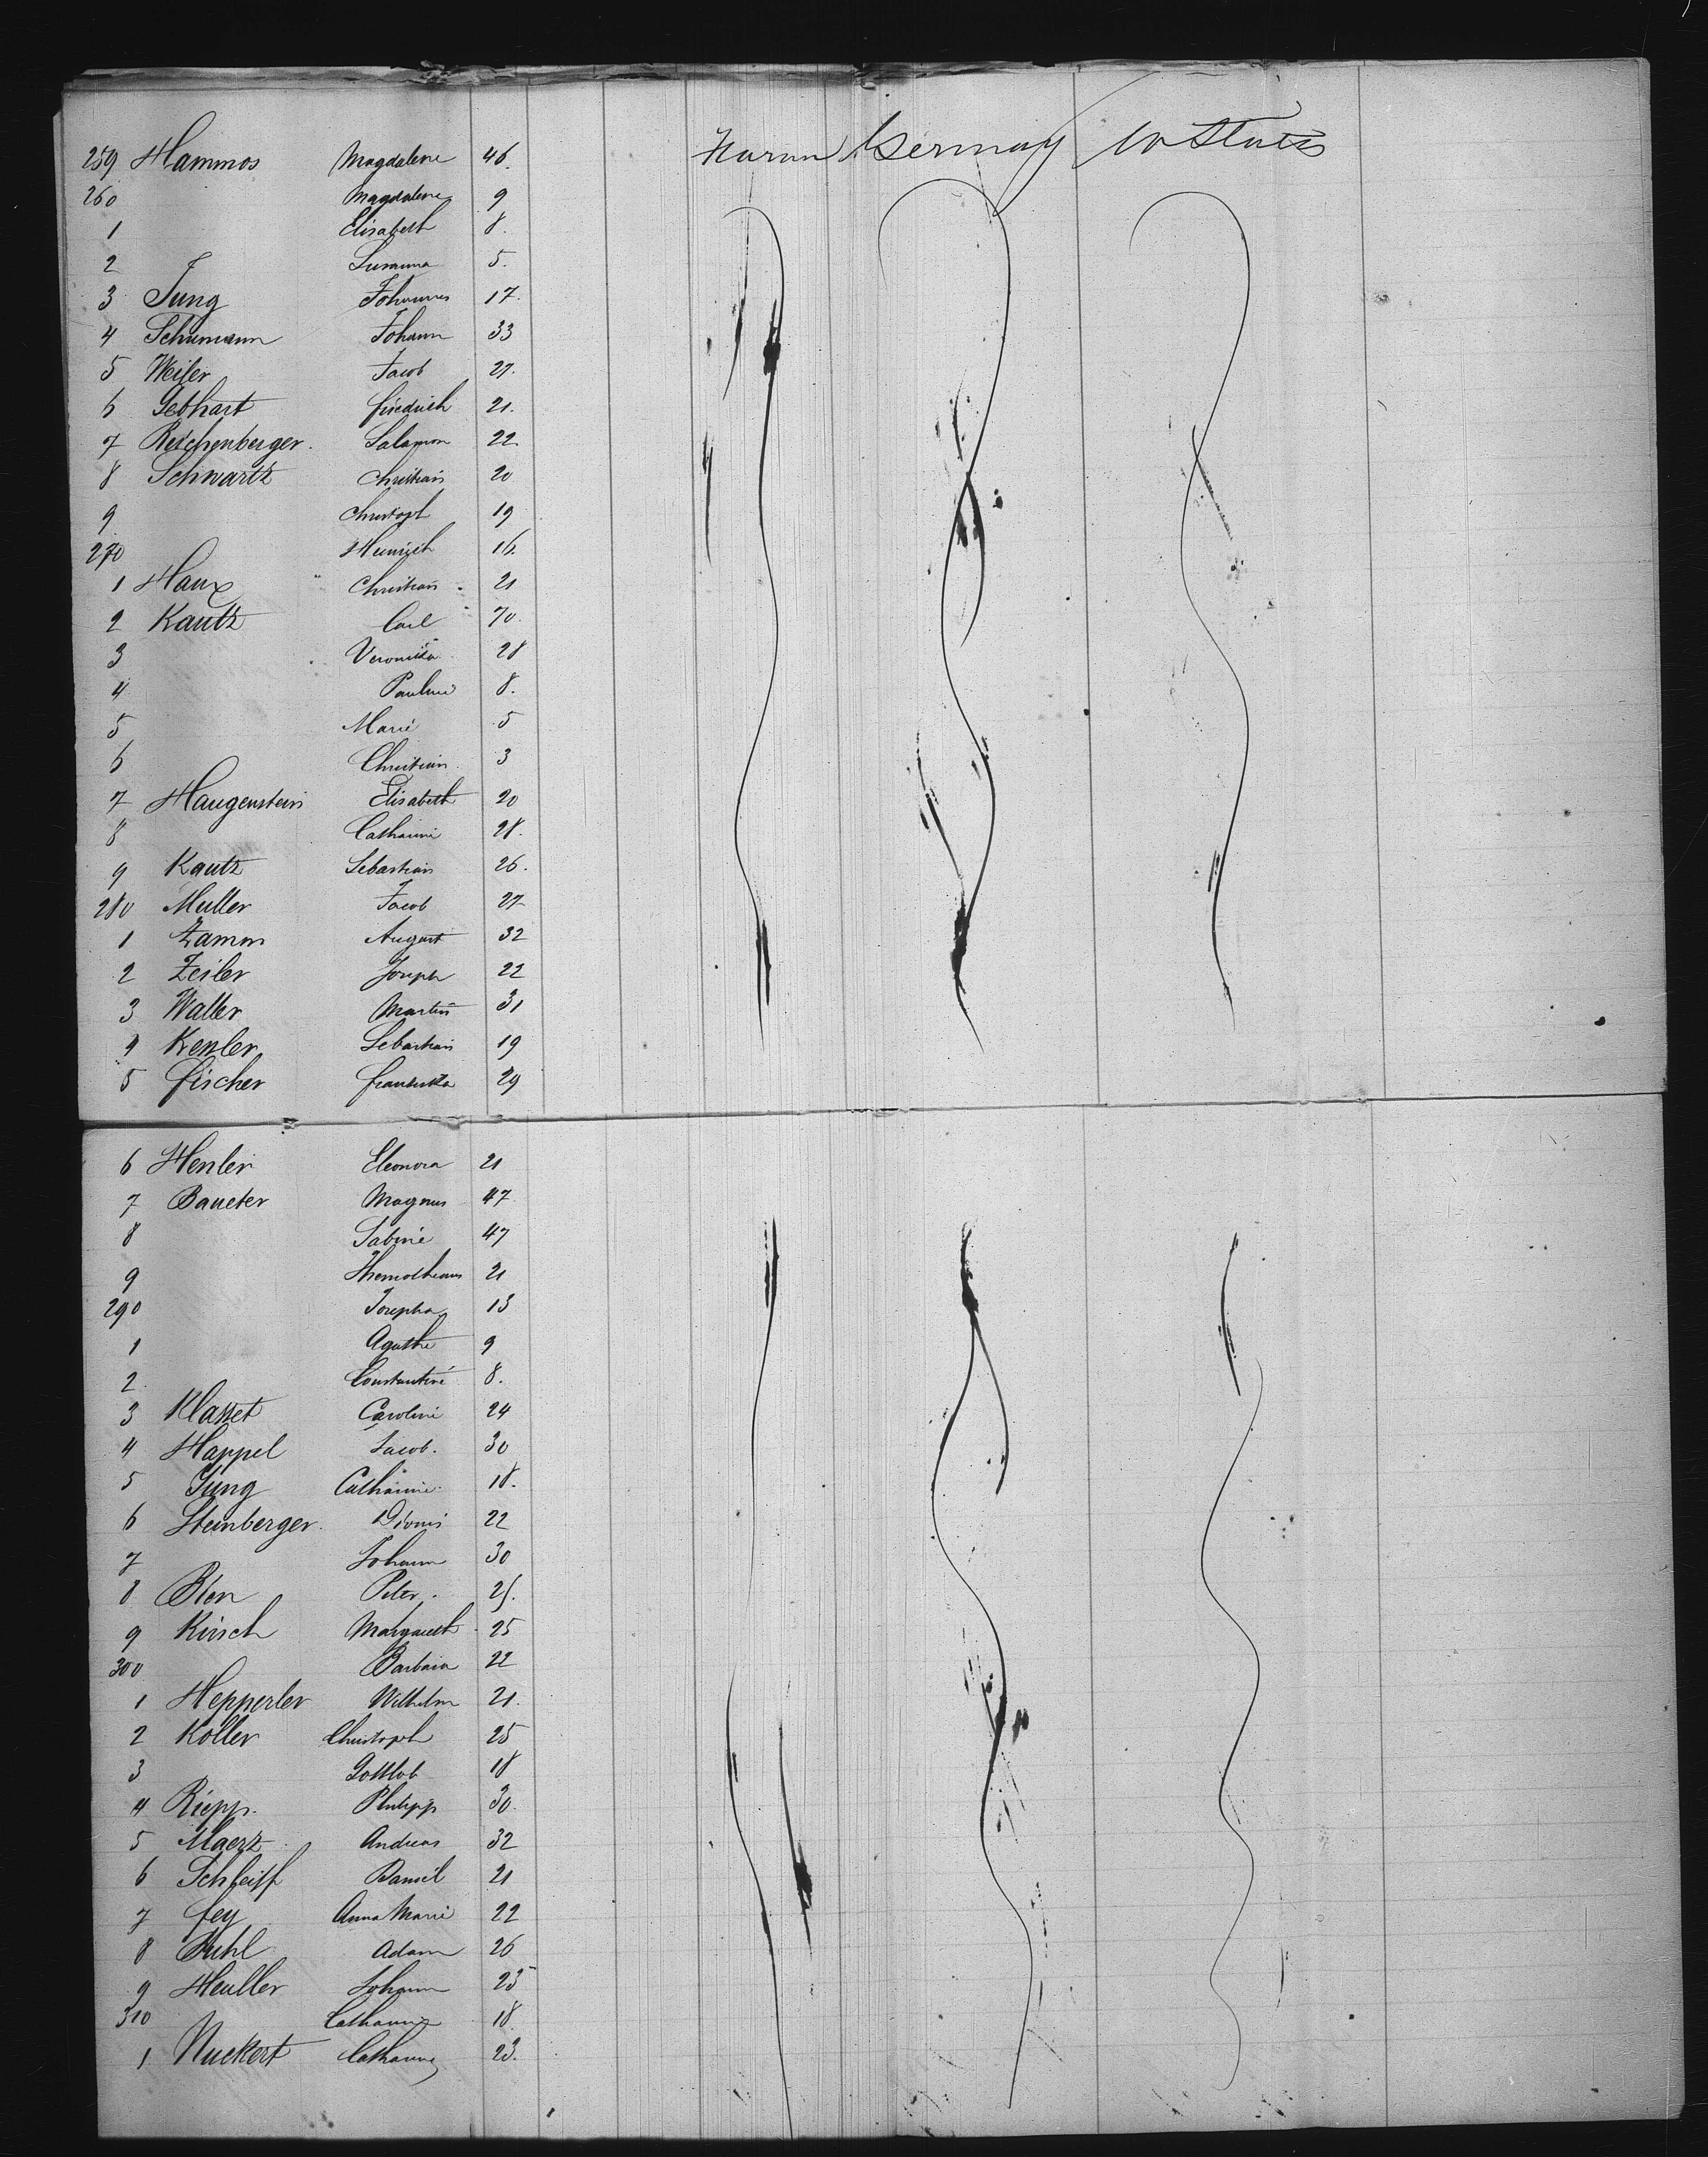 259 Hammos Magdalene 46. Germay Ust States
260 Magdalene 9
1 Elisabeth 8.
2 Susanna 5.
3 Jung Johannes 17.
4 Schumann Johann 33
5 Weiler Jacob 27.
6 Gebhart friedrich 21.
7 Reichenberger. Salamon 22
8 Schwartz Christian 20
9 Christoph 19
270 Heinrich 16.
1 Haux Christian 21
2 Kautz Carl 70.
3 Veronika 28
4 Pauline 8.
5 Marie 5
6 Christian 3
7 Haugenstein Elisabeth 20
8 Catharine 28.
9 Kautz Sebastian 26.
280 Muller Jacob 27
1 Zamm August 32
2 Zeiler Joseph 22
3 Walter Martin 31
4 Kesler Sebastian 19
5 fischer franziska 29
6 Henler Eleonora 21
7 Baueter Magnus 47
8 Sabine 47
9 21
290 Josepha 13
1 Agathe 9
2. Constantine 8.
3 Klasset Caroline 24
4 Happel Jacob. 30
5 Jung Catharine 18.
6 Steinberger. Dionis 22
7 Johann 30
8 Blen Peter. 25.
9 Kirsch Margareth 25
300 Barbara 22
1 Hepperler Wilhelm 21.
2 Koller Christoph 25
3 Gottlob 18
4 Riepp. Philipp 30.
5 Maerz Andreas 32
6 Schleiff Daniel 21
7 fey Anna Marie 22
8 Buhl Adam 26
9 Heuller Johann 25
310 Catharine 18.
1 Nuckert Catharine 23.